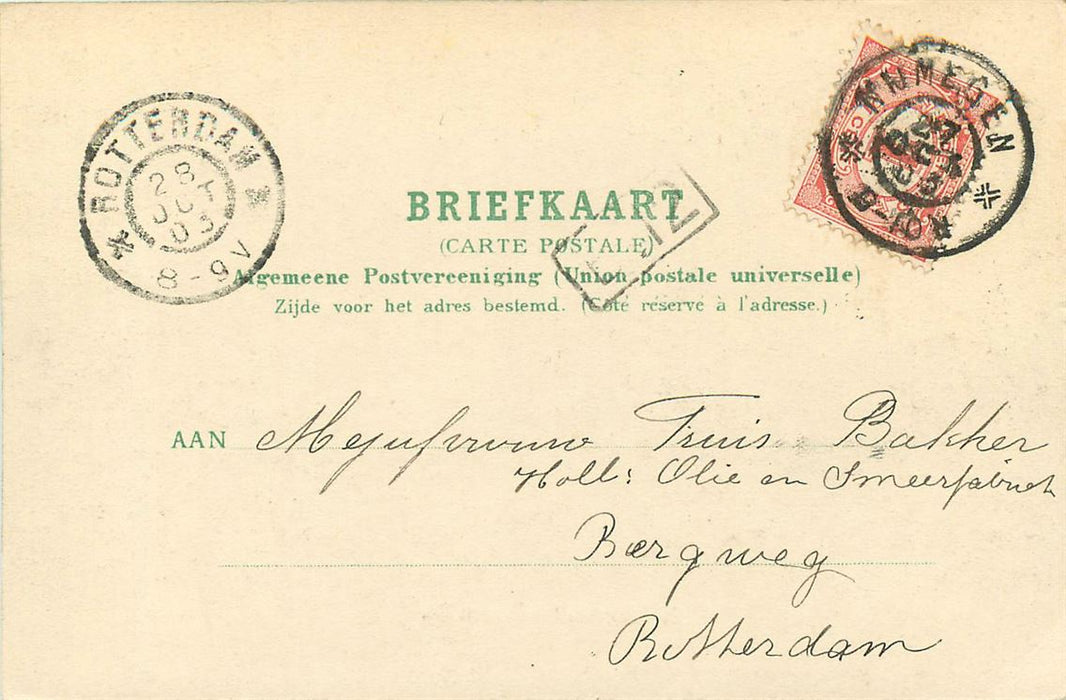 NIJMEGEN
ROTTERDAM
28 OCT 03
8-9V
BRIEFKAART
(CARTE POSTALE)
Algemeene Postvereeniging (Union postale universelle)
Zijde voor het adres bestemd. (Côté réservé à l'adresse.)
AAN Mejufvrouw Truis Bakker
Holl: Olie en Smeerfabriek
Bergweg
Rotterdam